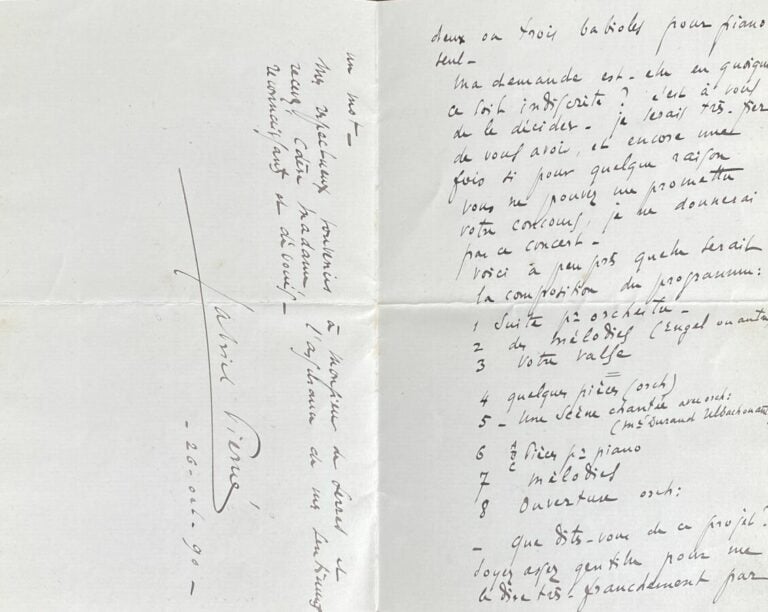 deux ou trois babioles pour piano
seul -
Ma demande est-elle en quoique
ce soit indiscrète ? C'est à vous
de le décider - je serais très-fier
de vous avoir, et encore une
fois si pour quelque raison
vous ne pouvez me promettre
votre concours, je ne donnerai
pas ce concert -
Voici à peu près quelle serait
la composition du programme :
1 Suite pr orchestre -
2 des mélodies (Engel ou autre
3 votre valse
4 quelques pièces (orch)
5 - Une Scène chantée avec orch:
(Me Durand Ulbach
6 Pièces pr piano
7 mélodies
8 Ouverture orch:
- que dites-vous de ce projet ?
Soyez assez gentille pour me
le dire très-franchement par
un mot -
Mes respectueux souvenirs à Monsieur de Serres et
recevez chère Madame l'assurance de mes sentiments
reconnaissants et dévoués -
Gabriel Pierné
- 26 - oct - 90 -